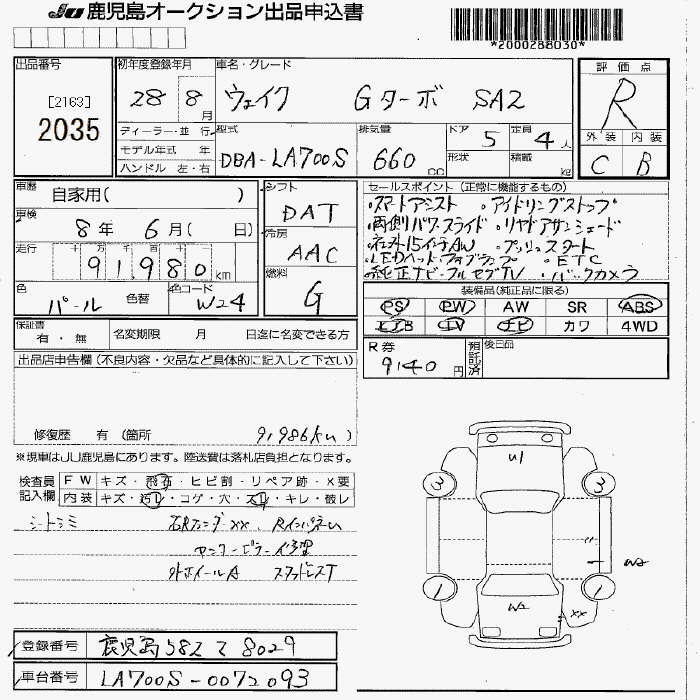 JU 鹿児島オークション出品申込書
*2000288030*
出品番号
[2163]
2035
初年度登録年月
28 8月
車名・グレード
ウェイク Gターボ SA2
評価点
R
外装 内装
C B
ディーラー・並行
モデル年式 年
ハンドル 左・右
型式
DBA-LA700S
排気量
660 cc
ドア 5
定員 4人
形状
積載 kg
車歴
自家用( )
車検
8年 6月( 日)
走行
十 万 千 百 十 一
91,980 km
色
パール
色替
色コード
W24
シフト
DAT
冷房
AAC
燃料
G
セールスポイント (正常に機能するもの)
・スマートアシスト ・アイドリングストップ
・両側パワースライド ・リヤドアサンシェード
15インチAW ・プッシュスタート
・LEDヘッド フォグランプ ・ETC
・純正ナビ・フルセグTV ・バックカメラ
装備品(純正品に限る)
PS PW AW SR ABS
エアB TV ナビ カワ 4WD
保証書
有・無
名変期限 月 日迄に名変できる方
R券
9140円
預託済
後日品
出品店申告欄(不良内容・欠品など具体的に記入して下さい)
修復歴 有(箇所 91,986km)
※現車はJU鹿児島にあります。陸送費は落札店負担となります。
検査員記入欄
FW キズ・飛石・ヒビ割・リペア跡・X要
内装 キズ・汚レ・コゲ・穴・スレ・キレ・破レ
シートシミ
XX、Rインパネル
センターピラー修理
外ホイールA スタッドレスT
U1
3 3
W2
1 1
W2
XX
登録番号 鹿児島582 て 8029
車台番号 LA700S-0072093